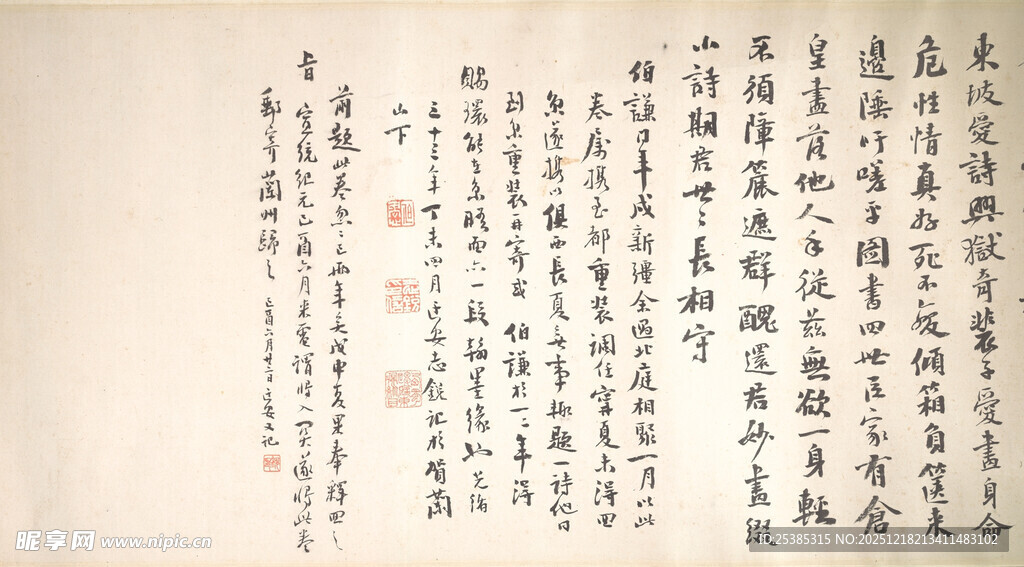 東坡愛詩興獄奇裴子愛畫身命
危性情真好死不變傾箱負篋來
邊陲吁嗟乎圖書四世臣家有倉
皇盡落他人手從茲無欲一身輕
不須障簏遮群醜還君妙畫綴
小詩期君世〻長相守
伯謙同年戍新疆余過北庭相聚一月以此
卷屬攜至都重裝調任甯夏未得四
俱西長夏無事輒題一詩他日
到京重裝再寄或伯謙於一二年得
賜環能在京晤面亦一段翰墨緣也光緒
三十三年丁未四月迂安志銳記於賀蘭
山下
前題此卷忽〻已兩年矣戊申夏果奉釋回之
旨宣統紀元己酉六月來電謂將入關遂將此卷
郵寄蘭州歸之己酉六月廿二日迂安又記
昵享网 www.nipic.cn
ID:25385315 NO:20251218213411483102